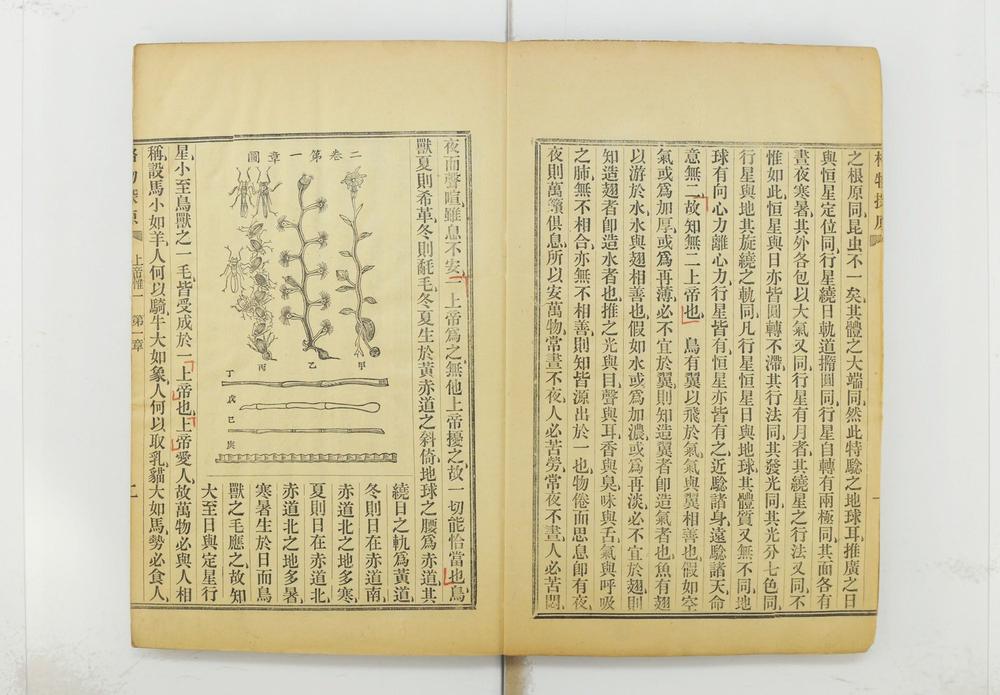 格物探原
一
之根原同昆虫不一矣其體之大端同然此特騐之地球耳推廣之日
與恒星定位同行星繞日軌道撱圓同行星自轉有兩極同其面各有
晝夜寒暑其外各包以大氣又同行星有月者其繞星之行法又同不
惟如此恒星與日亦皆圓轉不滯其行法同其發光同其光分七色同
行星與地其旋繞之軌同凡行星恒星日與地球其體質又無不同地
球有向心力離心力行星皆有恒星亦皆有之近騐諸身遠騐諸天命
意無二故知無二上帝也　鳥有翼以飛於氣氣與翼相善也假如空
氣或爲加厚或爲再薄必不宜於翼則知造翼者卽造氣者也魚有翅
以游於水水與翅相善也假如水或爲加濃或爲再淡必不宜於翅則
知造翅者卽造水者也推之光與目聲與耳香與臭味與舌氣與呼吸
之肺無不相合亦無不相善則知皆源出於一也物倦而思息卽有夜
夜則萬籟俱息所以安萬物常晝不夜人必苦勞常夜不晝人必苦悶
夜而聲喧雖息不安一上帝爲之無他上帝擾之故一切能恰當也鳥
獸夏則希革冬則毹毛冬夏生於黃赤道之斜倚地球之腰爲赤道其
二卷第一章圖
甲
乙
丙
丁
戊
己
庚
繞日之軌爲黃道
冬則日在赤道南
赤道北之地多寒
夏則日在赤道北
赤道北之地多暑
寒暑生於日而鳥
獸之毛應之故知
大至日與定星行
星小至鳥獸之一毛皆受成於一上帝也上帝愛人故萬物必與人相
稱設馬小如羊人何以騎牛大如象人何以取乳貓大如馬勢必食人
格物探原
上帝惟一　第一章
二